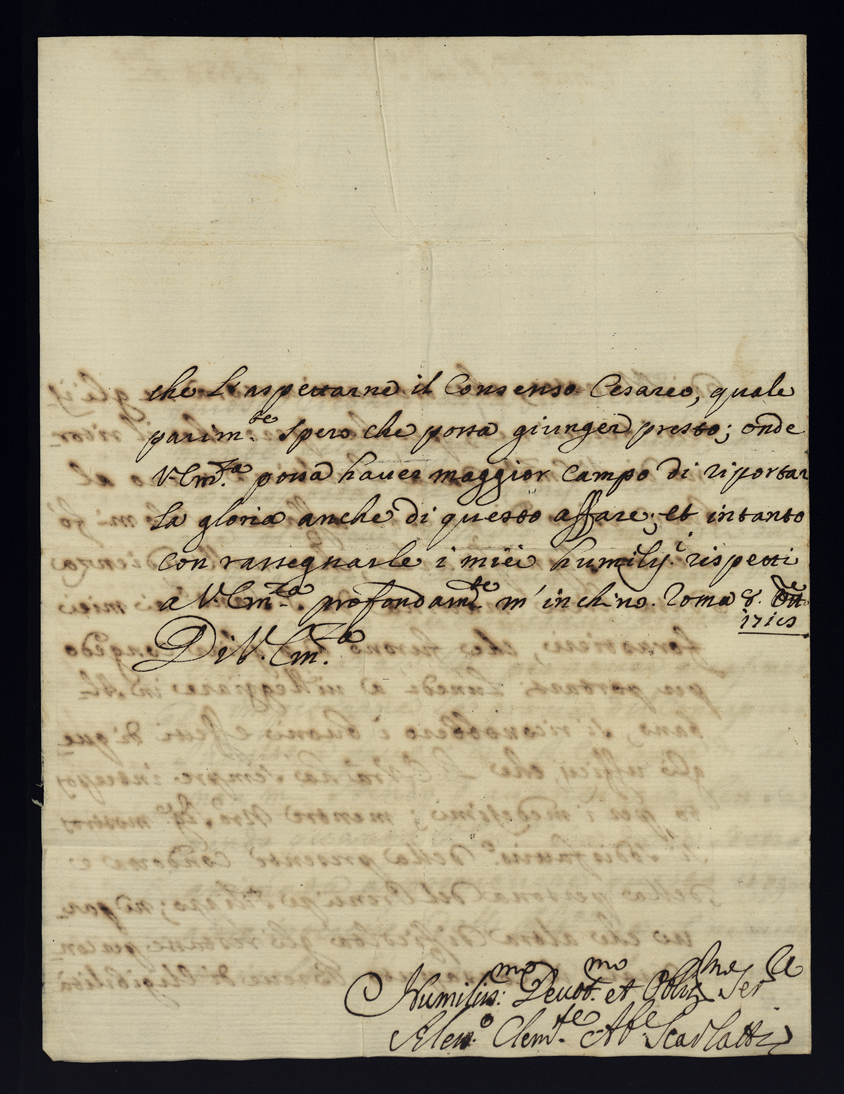 che l'aspettarne il Consenso Cesareo, quale
parim.te spero che possa giunger presto; onde
V. Em.za possa haver maggior campo di riportar
la gloria anche di questo affare; et intanto
con rassegnarle i miei humiliss.i rispetti
a V. Em.za profondam.te m'inchino. Roma 8.
Di V. Em.za
Humiliss.mo Devot.mo et Oblig.mo Ser.e
Aless.o Clem.te Ab.e Scarlatti